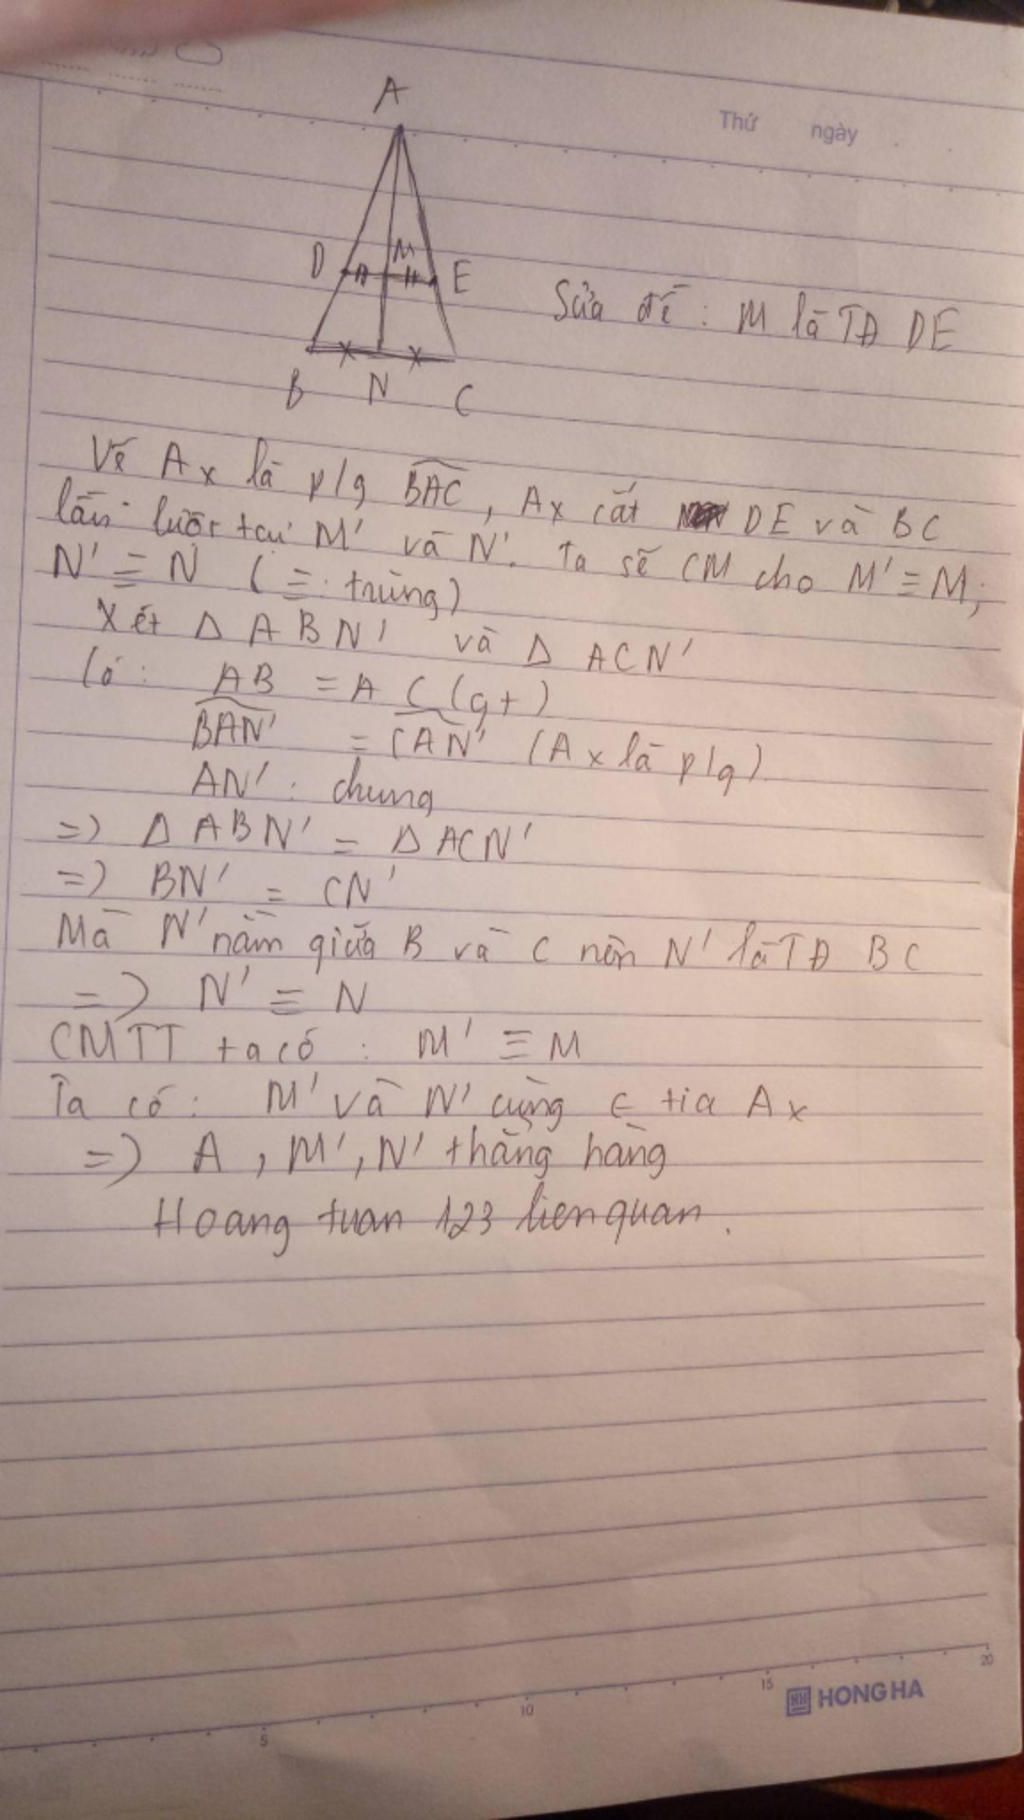 Thứ ngày
A
D M E
Sửa đề : M là TĐ DE
B N C
Vẽ Ax là p/g BAC, Ax cắt DE và BC
lần lượt tại M' và N'. Ta sẽ CM cho M' ≡ M;
N' ≡ N ( ≡ : trùng)
Xét Δ ABN' và Δ ACN'
Có : AB = AC (gt)
BAN' = CAN' (Ax là p/g)
AN' : chung
=) Δ ABN' = Δ ACN'
=) BN' = CN'
Mà N' nằm giữa B và C nên N' là TĐ BC
=) N' ≡ N
CMTT ta có : M' ≡ M
Ta có : M' và N' cùng ∈ tia Ax
=) A, M', N' thẳng hàng
Hoang tuan 123 lienquan.
5 10 15 20
HH HONG HA